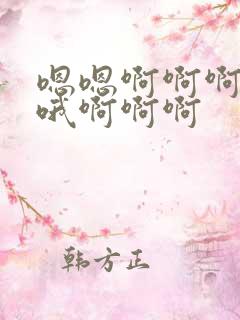 嗯嗯啊啊啊
哦啊啊啊
韩方正